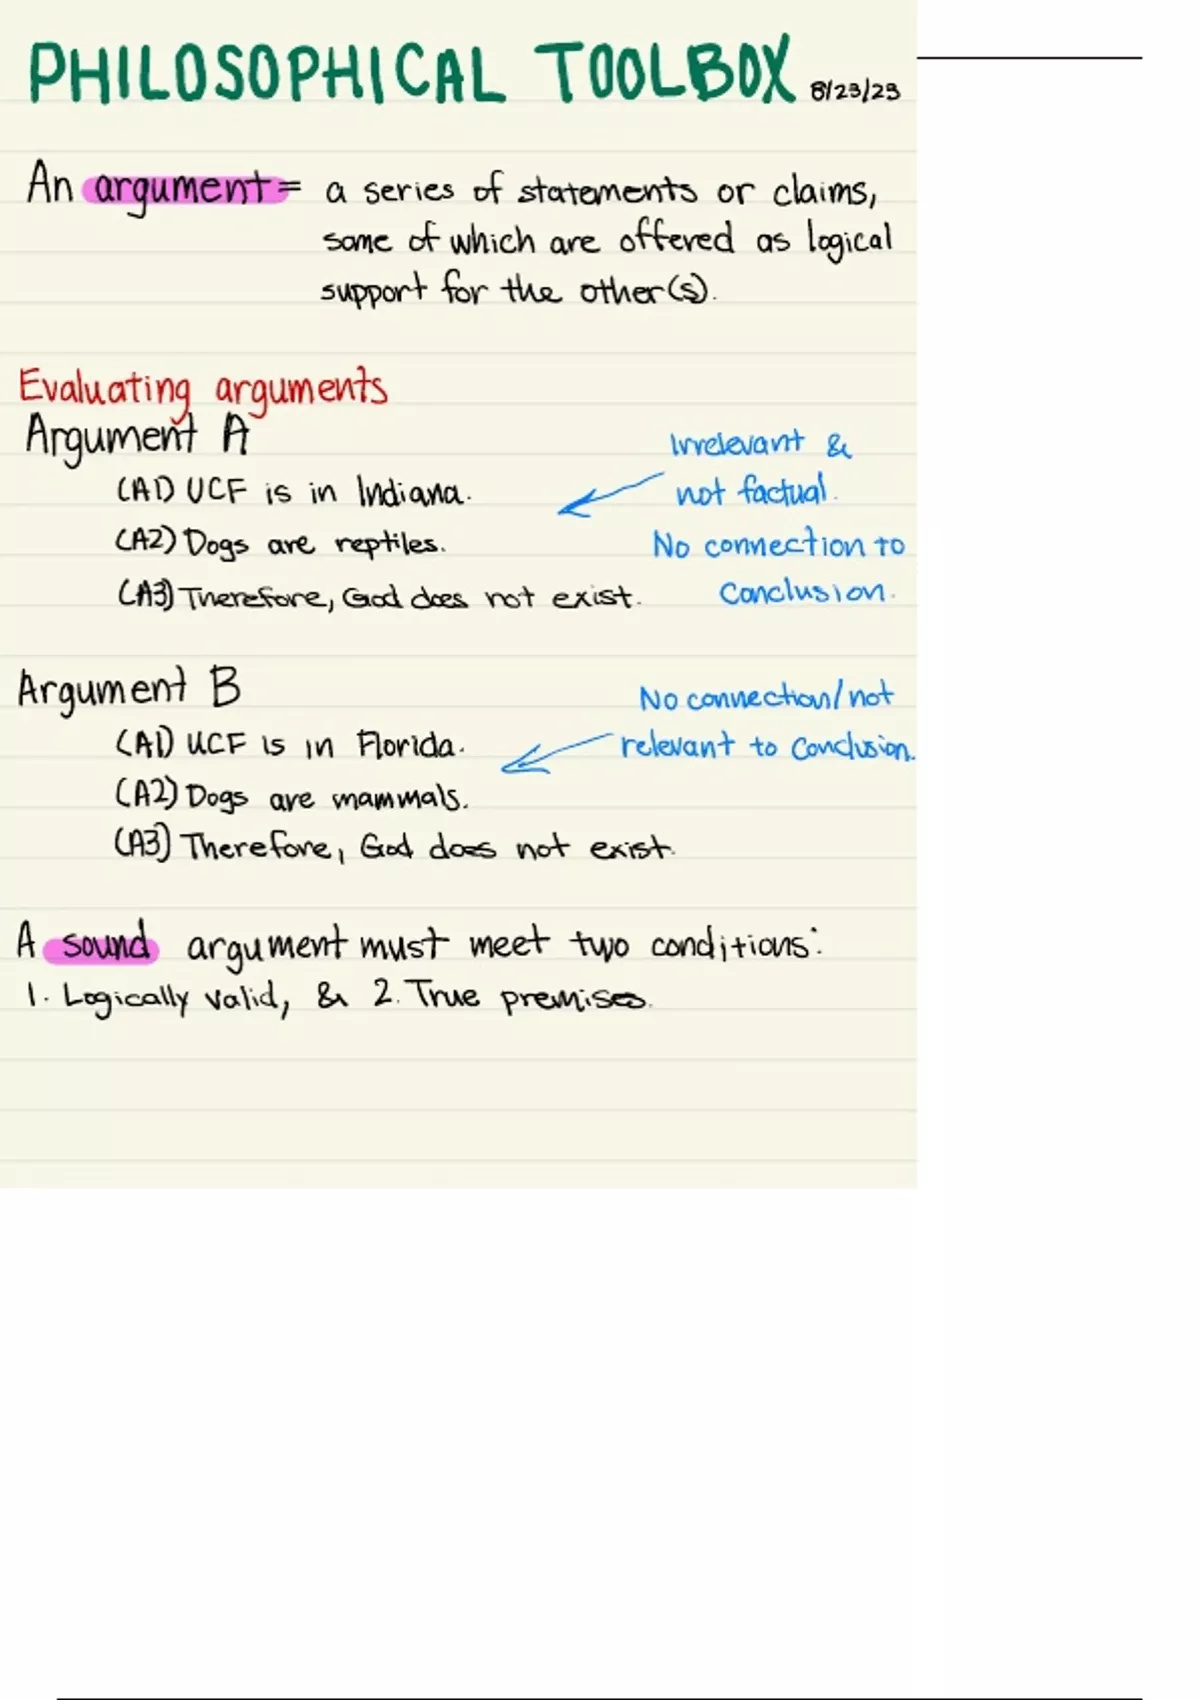 PHILOSOPHICAL TOOLBOX 8/23/23
An argument = a series of statements or claims,
some of which are offered as logical
support for the other(s).
Evaluating arguments
Argument A
(A1) UCF is in Indiana.
(A2) Dogs are reptiles.
(A3) Therefore, God does not exist.
Irrelevant &
not factual.
No connection to
Conclusion.
Argument B
(A1) UCF is in Florida.
(A2) Dogs are mammals.
(A3) Therefore, God does not exist.
No connection/not
relevant to Conclusion.
A sound argument must meet two conditions:
1. Logically valid, & 2. True premises.